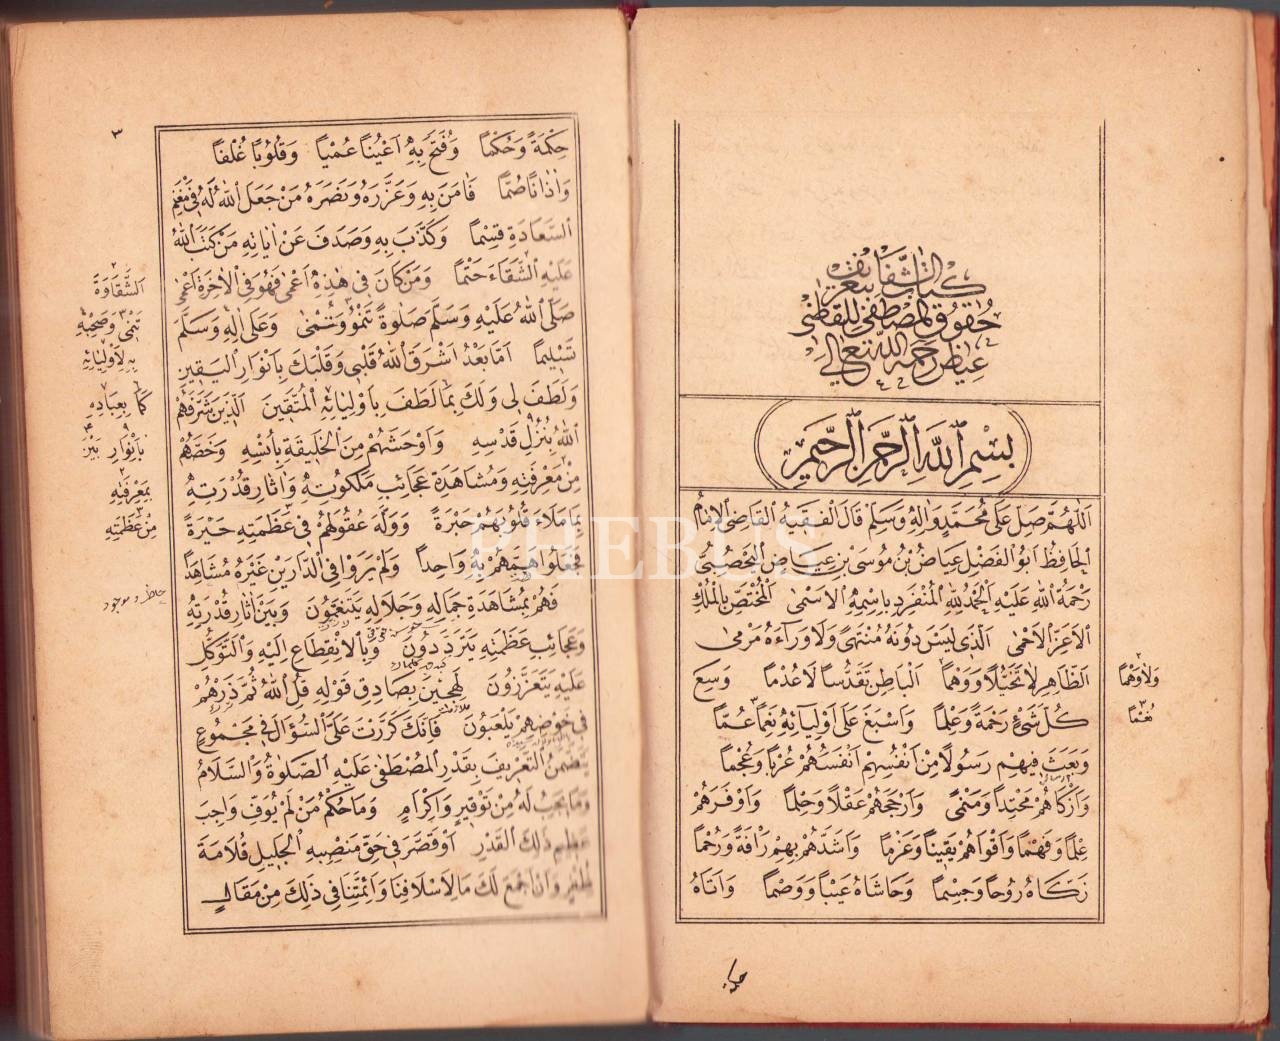 كتاب الشفا بتعريف
حقوق المصطفى للقاضى
عياض رحمه الله تعالى
بِسْمِ اللهِ الرَّحْمٰنِ الرَّحِيمِ
اَللّٰهُمَّ صَلِّ عَلٰى مُحَمَّدٍ وَاٰلِهِ وَسَلِّمْ قَالَ الْفَقِيهُ الْقَاضِى الْاِمَامُ
الْحَافِظُ اَبُو الْفَضْلِ عِيَاضُ بْنُ مُوسَى بْنِ عِيَاضٍ الْيَحْصُبِىُّ
رَحْمَةُ اللهِ عَلَيْهِ اَلْحَمْدُ لِلّٰهِ الْمُنْفَرِدِ بِاِسْمِهِ الْاَسْمٰى اَلْمُخْتَصِّ بِالْمُلْكِ
الْاَعَزِّ الْاَحْمٰى اَلَّذِى لَيْسَ دُونَهُ مُنْتَهًى وَلَا وَرَاءَهُ مَرْمًى
اَلظَّاهِرِ لَا تَخَيُّلًا وَوَهْمًا اَلْبَاطِنِ تَقَدُّسًا لَا عُدْمًا وَسِعَ
كُلَّ شَىْءٍ رَحْمَةً وَعِلْمًا وَاَسْبَغَ عَلٰى اَوْلِيَائِهِ نِعَمًا عُمًّا
وَبَعَثَ فِيهِمْ رَسُولًا مِنْ اَنْفُسِهِمْ اَنْفَسَهُمْ عُرْبًا وَعُجْمًا
وَاَزْكَاهُمْ مَحْتِدًا وَمَنْمًى وَاَرْجَحَهُمْ عَقْلًا وَحِلْمًا وَاَوْفَرَهُمْ
عِلْمًا وَفَهْمًا وَاَقْوَاهُمْ يَقِينًا وَعَزْمًا وَاَشَدَّهُمْ بِهِمْ رَأْفَةً وَرُحْمًا
زَكَّاهُ رُوحًا وَجِسْمًا وَحَاشَاهُ عَيْبًا وَوَصْمًا وَاٰتَاهُ
٢
وَلَا وَهْمًا
٣
حكمة
٣
حِكْمَةً وَحُكْمًا وَفَتَحَ بِهِ اَعْيُنًا عُمْيًا وَقُلُوبًا غُلْفًا
وَاٰذَانًا صُمًّا فَاٰمَنَ بِهِ وَعَزَّرَهُ وَنَصَرَهُ مَنْ جَعَلَ اللهُ لَهُ فِى مَغْنَمِ
السَّعَادَةِ قِسْمًا وَكَذَّبَ بِهِ وَصَدَفَ عَنْ اٰيَاتِهِ مَنْ كَتَبَ اللهُ
عَلَيْهِ الشَّقَاءَ حَتْمًا وَمَنْ كَانَ فِى هٰذِهِ اَعْمٰى فَهُوَ فِى الْاٰخِرَةِ اَعْمٰى
صَلَّى اللهُ عَلَيْهِ وَسَلَّمَ صَلٰوةً تَنْمُو وَتُنْمٰى وَعَلٰى اٰلِهِ وَسَلَّمَ
تَسْلِيمًا اَمَّا بَعْدُ اَشْرَقَ اللهُ قَلْبِى وَقَلْبَكَ بِاَنْوَارِ الْيَقِينِ
وَلَطَفَ لِى وَلَكَ بِمَا لَطَفَ بِاَوْلِيَائِهِ الْمُتَّقِينَ الَّذِينَ شَرَّفَهُمُ
اللهُ بِنُزُلِ قُدْسِهِ وَاَوْحَشَهُمْ مِنَ الْخَلِيقَةِ بِاُنْسِهِ وَخَصَّهُمْ
مِنْ مَعْرِفَتِهِ وَمُشَاهَدَةِ عَجَائِبِ مَلَكُوتِهِ وَاٰثَارِ قُدْرَتِهِ
بِمَا مَلَاَ قُلُوبَهُمْ حَبْرَةً وَوَلَّهَ عُقُولَهُمْ فِى عَظَمَتِهِ حَيْرَةً
فَجَعَلُوا هَمَّهُمْ بِهِ وَاحِدًا وَلَمْ يَرَوْا فِى الدَّارَيْنِ غَيْرَهُ مُشَاهَدًا
فَهُمْ بِمُشَاهَدَةِ جَمَالِهِ وَجَلَالِهِ يَتَنَعَّمُونَ وَبَيْنَ اٰثَارِ قُدْرَتِهِ
وَعَجَائِبِ عَظَمَتِهِ يَتَرَدَّدُونَ وَبِالْاِنْقِطَاعِ اِلَيْهِ وَالتَّوَكُّلِ
عَلَيْهِ يَتَعَزَّزُونَ لَهِجِينَ بِصَادِقِ قَوْلِهِ قُلِ اللهُ ثُمَّ ذَرْهُمْ
فِى خَوْضِهِمْ يَلْعَبُونَ فَاِنَّكَ كَرَّرْتَ عَلَىَّ السُّؤَالَ فِى مَجْمُوعٍ
يَتَضَمَّنُ التَّعْرِيفَ بِقَدْرِ الْمُصْطَفٰى عَلَيْهِ الصَّلٰوةُ وَالسَّلَامُ
وَمَا يَجِبُ لَهُ مِنْ تَوْقِيرٍ وَاِكْرَامٍ وَمَا حُكْمُ مَنْ لَمْ يُوَفِّ وَاجِبَ
عَظِيمِ ذٰلِكَ الْقَدْرِ اَوْ قَصَّرَ فِى حَقِّ مَنْصِبِهِ الْجَلِيلِ قُلَامَةَ
ظُفْرٍ وَاَنْ اَجْمَعَ لَكَ مَا لِاَسْلَافِنَا وَاَئِمَّتِنَا فِى ذٰلِكَ مِنْ مَقَالٍ
٢
اَلشَّقَاوَةَ
تَنْمٰى وَصَحْبِهِ
بِهِ لِاَوْلِيَائِهِ
كَمَا بِعِبَادِهِ
بِاَنْوَارِ بَيْنَ
بِمَعْرِفَتِهِ
مِنْ عَظَمَتِهِ
حاضر و موجود
PHEBUS